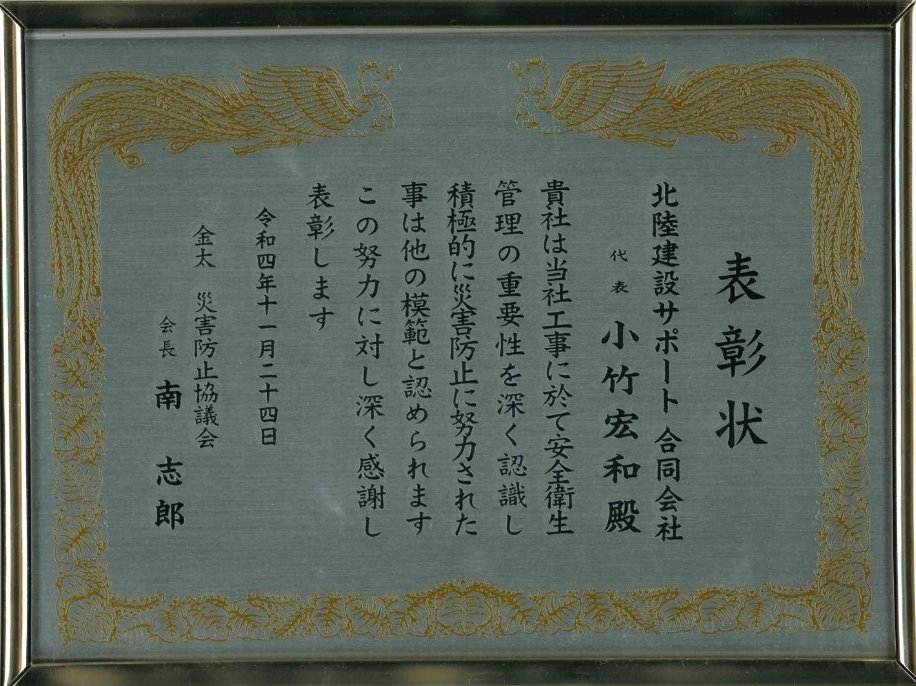 表彰状
北陸建設サポート 合同会社
代表 小竹宏和殿
貴社は当社工事に於て安全衛生
管理の重要性を深く認識し
積極的に災害防止に努力された
事は他の模範と認められます
この努力に対し深く感謝し
表彰します
令和四年十一月二十四日
金太 災害防止協議会
会長 南 志郎